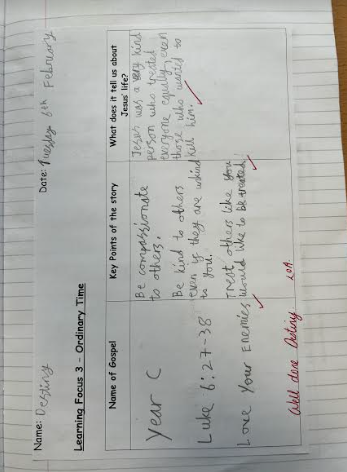 Name: Destiny
Date: Tuesday 6th February
Learning Focus 3 - Ordinary Time
Name of Gospel
Year C
Luke 6:27-38
Love Your Enemies
Key Points of the story
Be compassionate
to others.
Be kind to others
even if they are unkind
to you.
Treat others like you
would like to be treated
What does it tell us about
Jesus' life?
Jesus was a very kind
person who treated
everyone equally, even
those who wanted to
kill him.
Well done Destiny